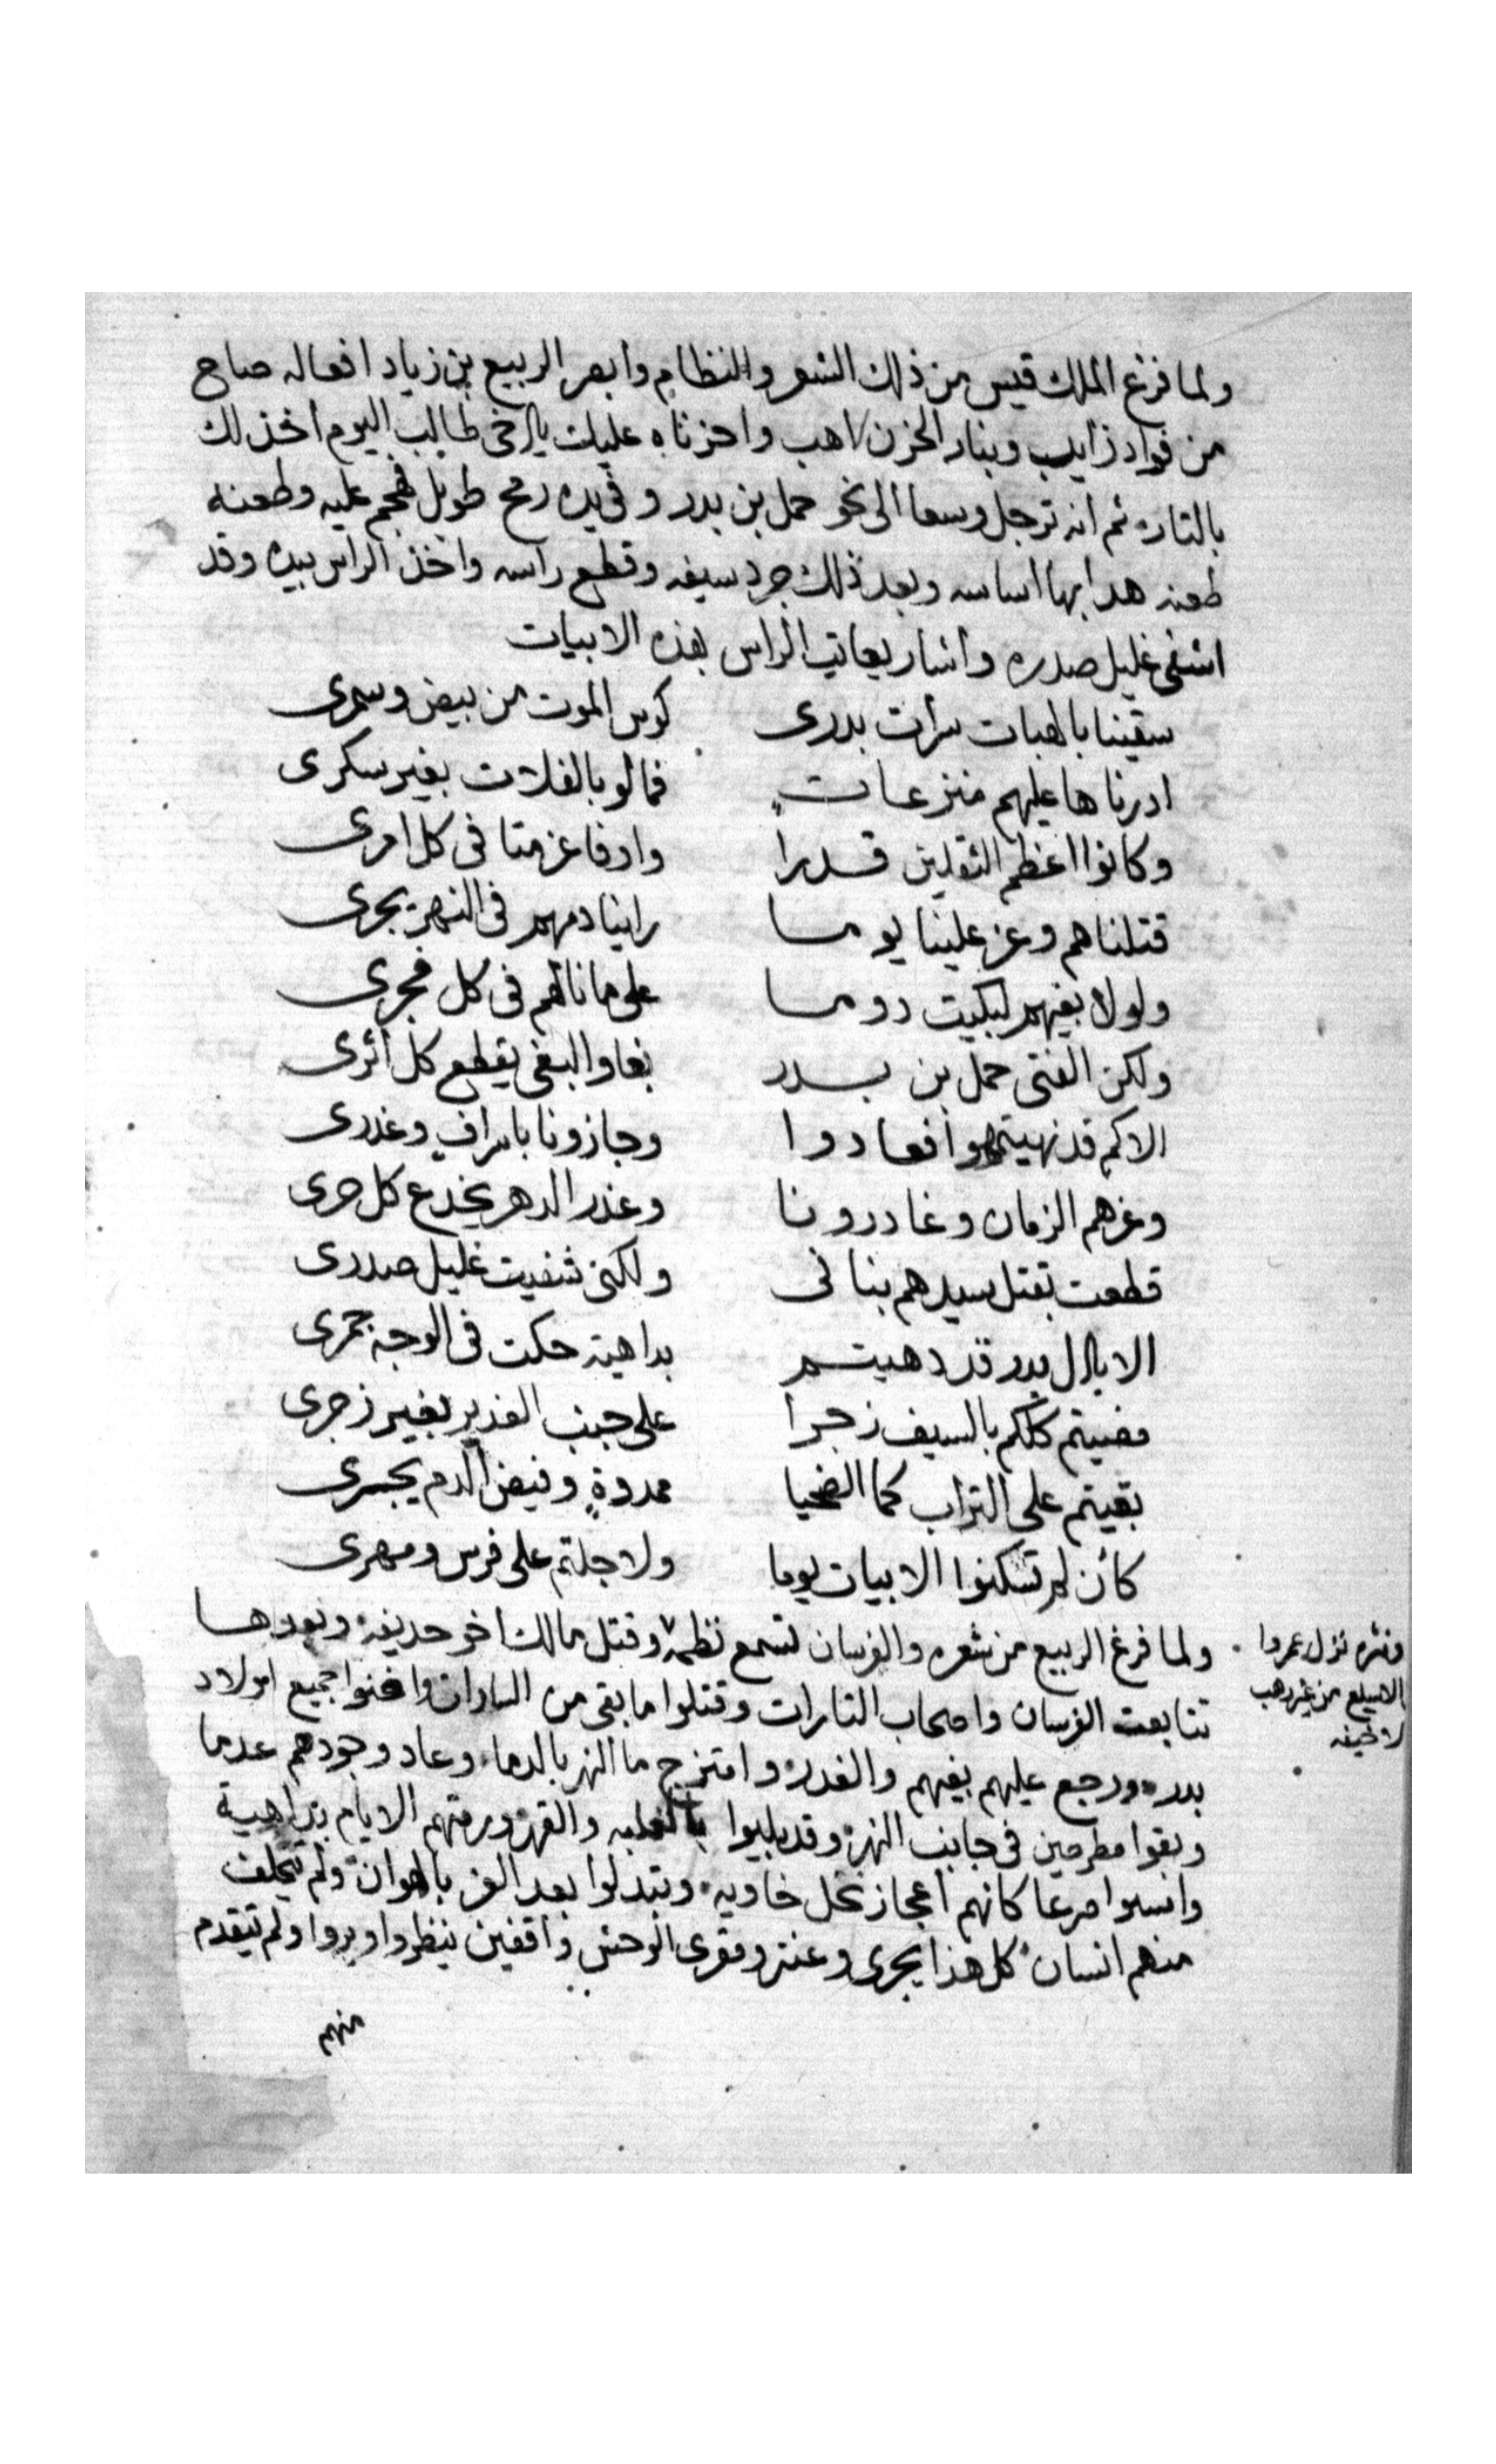 ولما فرغ الملك قيس من ذلك الشعر والنظام وابصر الربيع بن زياد افعاله صاح
من فواد ذايب وبنار الحزن لاهب واحزناه عليك يا اخى طالب اليوم اخذ لك
بالتار ثم انه ترجل وسعا الى نحو حمل بن بدر وفى يده رمح طويل فهجم عليه وطعنه
طعنه هدا بها اساسه وبعد ذلك جرد سيفه وقطع راسه واخذ الراس بيده وقد
اشفى غليل صدره واشار يعاتب الراس بهذه الابيات
سقينا بالهبات سرات بدرى كوس الموت من بيض وسمرى
ادرناها عليهم منزعات فمالو بالفلات بغير سكرى
وكانوا اعظم الثقلين قدرا وادفا عزمتا فى كل امرى
قتلناهم وعز علينا يوما راينا دمهم فى النهر يجرى
ولولا بغيهم لبكيت دوما على ما نالهم فى كل فجرى
ولكن الفتى حمل بن بدر بغا والبغى يقطع كل أثرى
الاكم قد نهيتهموا فعادوا وجازونا باسراف وغدرى
وغرهم الزمان وغادرونا وغدر الدهر يخدع كل حرى
قطعت بقتل سيدهم بنانى ولكنى شفيت غليل صدرى
الا يال بدر قد دهيتم بداهية حكت فى الوجه جمرى
مضيتم كلكم بالسيف زجرا على جنب الغدير بغير زجرى
بقيتم على التراب كما الضحيا ممدوة وفيض الدم يجرى
كأن لم تسكنوا الابيات يوما ولا جلتم على فرس ومهرى
ولما فرغ الربيع من شعره والفرسان تسمع نظمه وقتل مالك اخو حديفة وبعدها
تتابعت الفرسان واصحاب التارات وقتلوا ما بقى من السادات وافنوا جميع اولاد
بدر ورجع عليهم بغيهم والغدر وامتزج ما النهر بالدما وعاد وجودهم عدما
وبقوا مطرحين فى جانب النهر وقد بليوا بالغلبه والقهر ورمتهم الايام بداهية
وانسوا صرعا كانهم اعجاز نخل خاويه وتبدلوا بعد العز بالهوان ولم يتخلف
منهم انسان كل هذا يجرى وعنتر ومقرى الوحش واقفين ينظروا ويروا ولم يتقدم
منهم
ونثره نزل عمروا
من غير رهب
لا خيفه